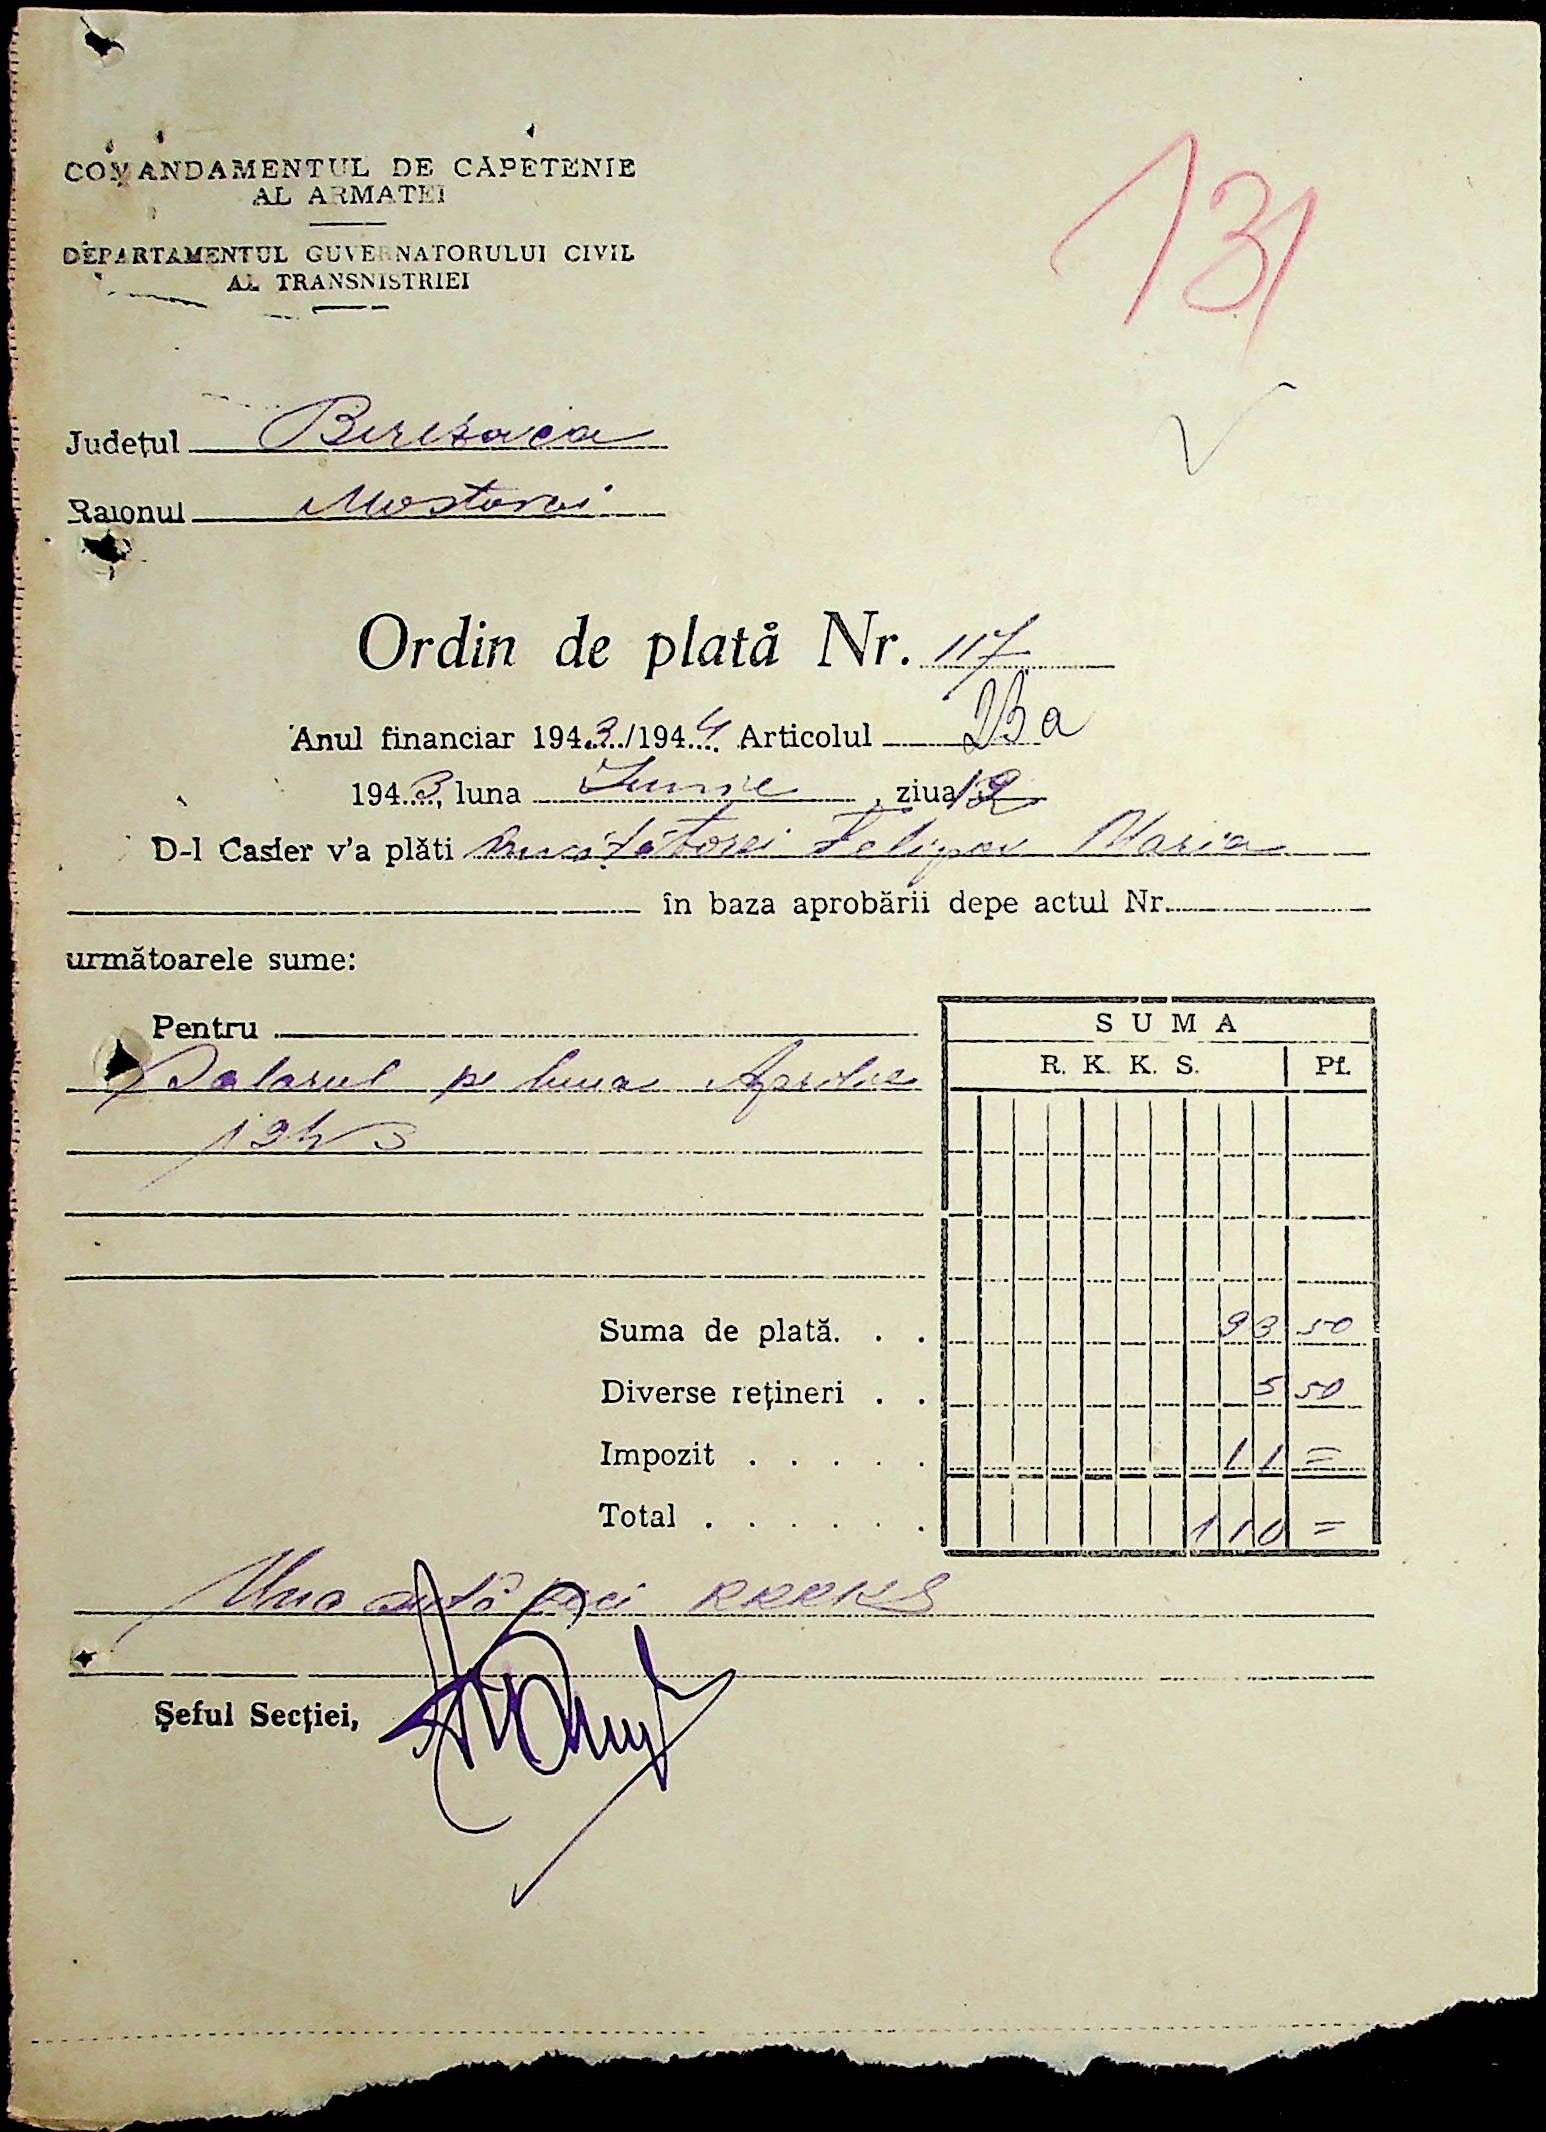 COMANDAMENTUL DE CAPETENIE
AL ARMATEI
DEPARTAMENTUL GUVERNATORULUI CIVIL
AL TRANSNISTRIEI
131
Județul Berezovca
Raionul Mostovoi
Ordin de plată Nr. 117
Anul financiar 1943/1944 Articolul
1943, luna Iunie, ziua 12
D-l Casier v'a plăti Maria
în baza aprobării depe actul Nr.
următoarele sume:
Pentru
Salarul pe luna Aprilie
1943
SUMA
R. K. K. S. Pf.
Suma de plată. . . 93 50
Diverse rețineri . . 5 50
Impozit . . . . . 11 =
Total . . . . . . 110 =
Una sută zeci RKKS
Șeful Secției,